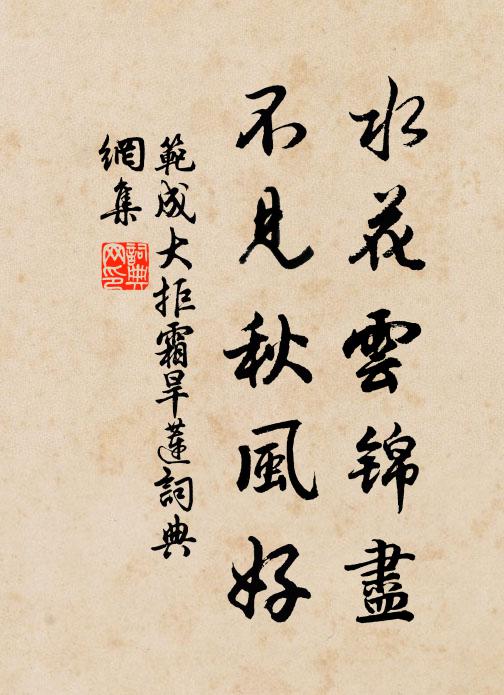 水花雲錦盡
不見秋風好
範成大拒霜旱蓮詞典
網集
詞典
网印